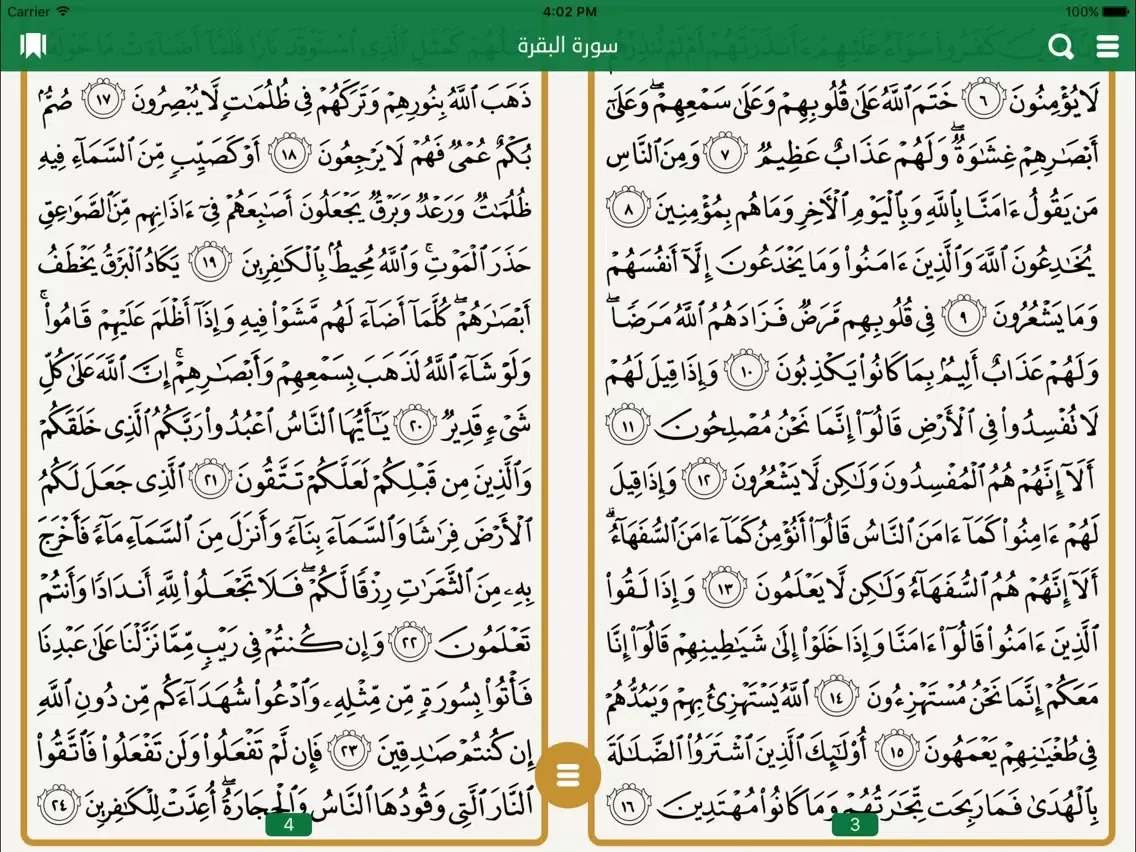 Carrier
4:02 PM
100%
سورة البقرة
لَا يُؤْمِنُونَ ٦ خَتَمَ ٱللَّهُ عَلَىٰ قُلُوبِهِمْ وَعَلَىٰ سَمْعِهِمْ ۖ وَعَلَىٰٓ
أَبْصَٰرِهِمْ غِشَٰوَةٌ ۖ وَلَهُمْ عَذَابٌ عَظِيمٌ ٧ وَمِنَ ٱلنَّاسِ
مَن يَقُولُ ءَامَنَّا بِٱللَّهِ وَبِٱلْيَوْمِ ٱلْءَاخِرِ وَمَا هُم بِمُؤْمِنِينَ ٨
يُخَٰدِعُونَ ٱللَّهَ وَٱلَّذِينَ ءَامَنُوا۟ وَمَا يَخْدَعُونَ إِلَّآ أَنفُسَهُمْ
وَمَا يَشْعُرُونَ ٩ فِى قُلُوبِهِم مَّرَضٌ فَزَادَهُمُ ٱللَّهُ مَرَضًا ۖ
وَلَهُمْ عَذَابٌ أَلِيمٌۢ بِمَا كَانُوا۟ يَكْذِبُونَ ١٠ وَإِذَا قِيلَ لَهُمْ
لَا تُفْسِدُوا۟ فِى ٱلْأَرْضِ قَالُوٓا۟ إِنَّمَا نَحْنُ مُصْلِحُونَ ١١
أَلَآ إِنَّهُمْ هُمُ ٱلْمُفْسِدُونَ وَلَٰكِن لَّا يَشْعُرُونَ ١٢ وَإِذَا قِيلَ
لَهُمْ ءَامِنُوا۟ كَمَآ ءَامَنَ ٱلنَّاسُ قَالُوٓا۟ أَنُؤْمِنُ كَمَآ ءَامَنَ ٱلسُّفَهَآءُ ۗ
أَلَآ إِنَّهُمْ هُمُ ٱلسُّفَهَآءُ وَلَٰكِن لَّا يَعْلَمُونَ ١٣ وَإِذَا لَقُوا۟
ٱلَّذِينَ ءَامَنُوا۟ قَالُوٓا۟ ءَامَنَّا وَإِذَا خَلَوْا۟ إِلَىٰ شَيَٰطِينِهِمْ قَالُوٓا۟ إِنَّا
مَعَكُمْ إِنَّمَا نَحْنُ مُسْتَهْزِءُونَ ١٤ ٱللَّهُ يَسْتَهْزِئُ بِهِمْ وَيَمُدُّهُمْ
فِى طُغْيَٰنِهِمْ يَعْمَهُونَ ١٥ أُو۟لَٰٓئِكَ ٱلَّذِينَ ٱشْتَرَوُا۟ ٱلضَّلَٰلَةَ
بِٱلْهُدَىٰ فَمَا رَبِحَت تِّجَٰرَتُهُمْ وَمَا كَانُوا۟ مُهْتَدِينَ ١٦
3
ذَهَبَ ٱللَّهُ بِنُورِهِمْ وَتَرَكَهُمْ فِى ظُلُمَٰتٍ لَّا يُبْصِرُونَ ١٧ صُمٌّۢ
بُكْمٌ عُمْىٌ فَهُمْ لَا يَرْجِعُونَ ١٨ أَوْ كَصَيِّبٍ مِّنَ ٱلسَّمَآءِ فِيهِ
ظُلُمَٰتٌ وَرَعْدٌ وَبَرْقٌ يَجْعَلُونَ أَصَٰبِعَهُمْ فِىٓ ءَاذَانِهِم مِّنَ ٱلصَّوَٰعِقِ
حَذَرَ ٱلْمَوْتِ ۚ وَٱللَّهُ مُحِيطٌۢ بِٱلْكَٰفِرِينَ ١٩ يَكَادُ ٱلْبَرْقُ يَخْطَفُ
أَبْصَٰرَهُمْ ۖ كُلَّمَآ أَضَآءَ لَهُم مَّشَوْا۟ فِيهِ وَإِذَآ أَظْلَمَ عَلَيْهِمْ قَامُوا۟ ۚ
وَلَوْ شَآءَ ٱللَّهُ لَذَهَبَ بِسَمْعِهِمْ وَأَبْصَٰرِهِمْ ۚ إِنَّ ٱللَّهَ عَلَىٰ كُلِّ
شَىْءٍ قَدِيرٌ ٢٠ يَٰٓأَيُّهَا ٱلنَّاسُ ٱعْبُدُوا۟ رَبَّكُمُ ٱلَّذِى خَلَقَكُمْ
وَٱلَّذِينَ مِن قَبْلِكُمْ لَعَلَّكُمْ تَتَّقُونَ ٢١ ٱلَّذِى جَعَلَ لَكُمُ
ٱلْأَرْضَ فِرَٰشًا وَٱلسَّمَآءَ بِنَآءً وَأَنزَلَ مِنَ ٱلسَّمَآءِ مَآءً فَأَخْرَجَ
بِهِۦ مِنَ ٱلثَّمَرَٰتِ رِزْقًا لَّكُمْ ۖ فَلَا تَجْعَلُوا۟ لِلَّهِ أَندَادًا وَأَنتُمْ
تَعْلَمُونَ ٢٢ وَإِن كُنتُمْ فِى رَيْبٍ مِّمَّا نَزَّلْنَا عَلَىٰ عَبْدِنَا
فَأْتُوا۟ بِسُورَةٍ مِّن مِّثْلِهِۦ وَٱدْعُوا۟ شُهَدَآءَكُم مِّن دُونِ ٱللَّهِ
إِن كُنتُمْ صَٰدِقِينَ ٢٣ فَإِن لَّمْ تَفْعَلُوا۟ وَلَن تَفْعَلُوا۟ فَٱتَّقُوا۟
ٱلنَّارَ ٱلَّتِى وَقُودُهَا ٱلنَّاسُ وَٱلْحِجَارَةُ ۖ أُعِدَّتْ لِلْكَٰفِرِينَ ٢٤
4